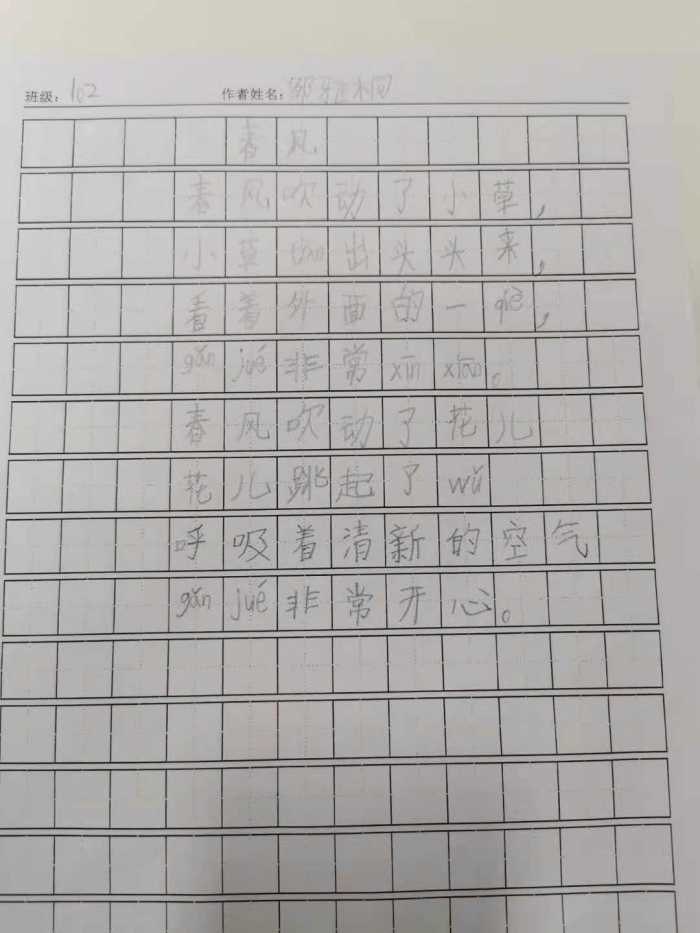 班级：102 作者姓名：邹雅桐
春风
春风吹动了小草，
小草tàn出头头来，
看着外面的一qiè，
gǎn jué非常xīn xiān。
春风吹动了花儿
花儿跳起了wǔ
呼吸着清新的空气
gǎn jué非常开心。